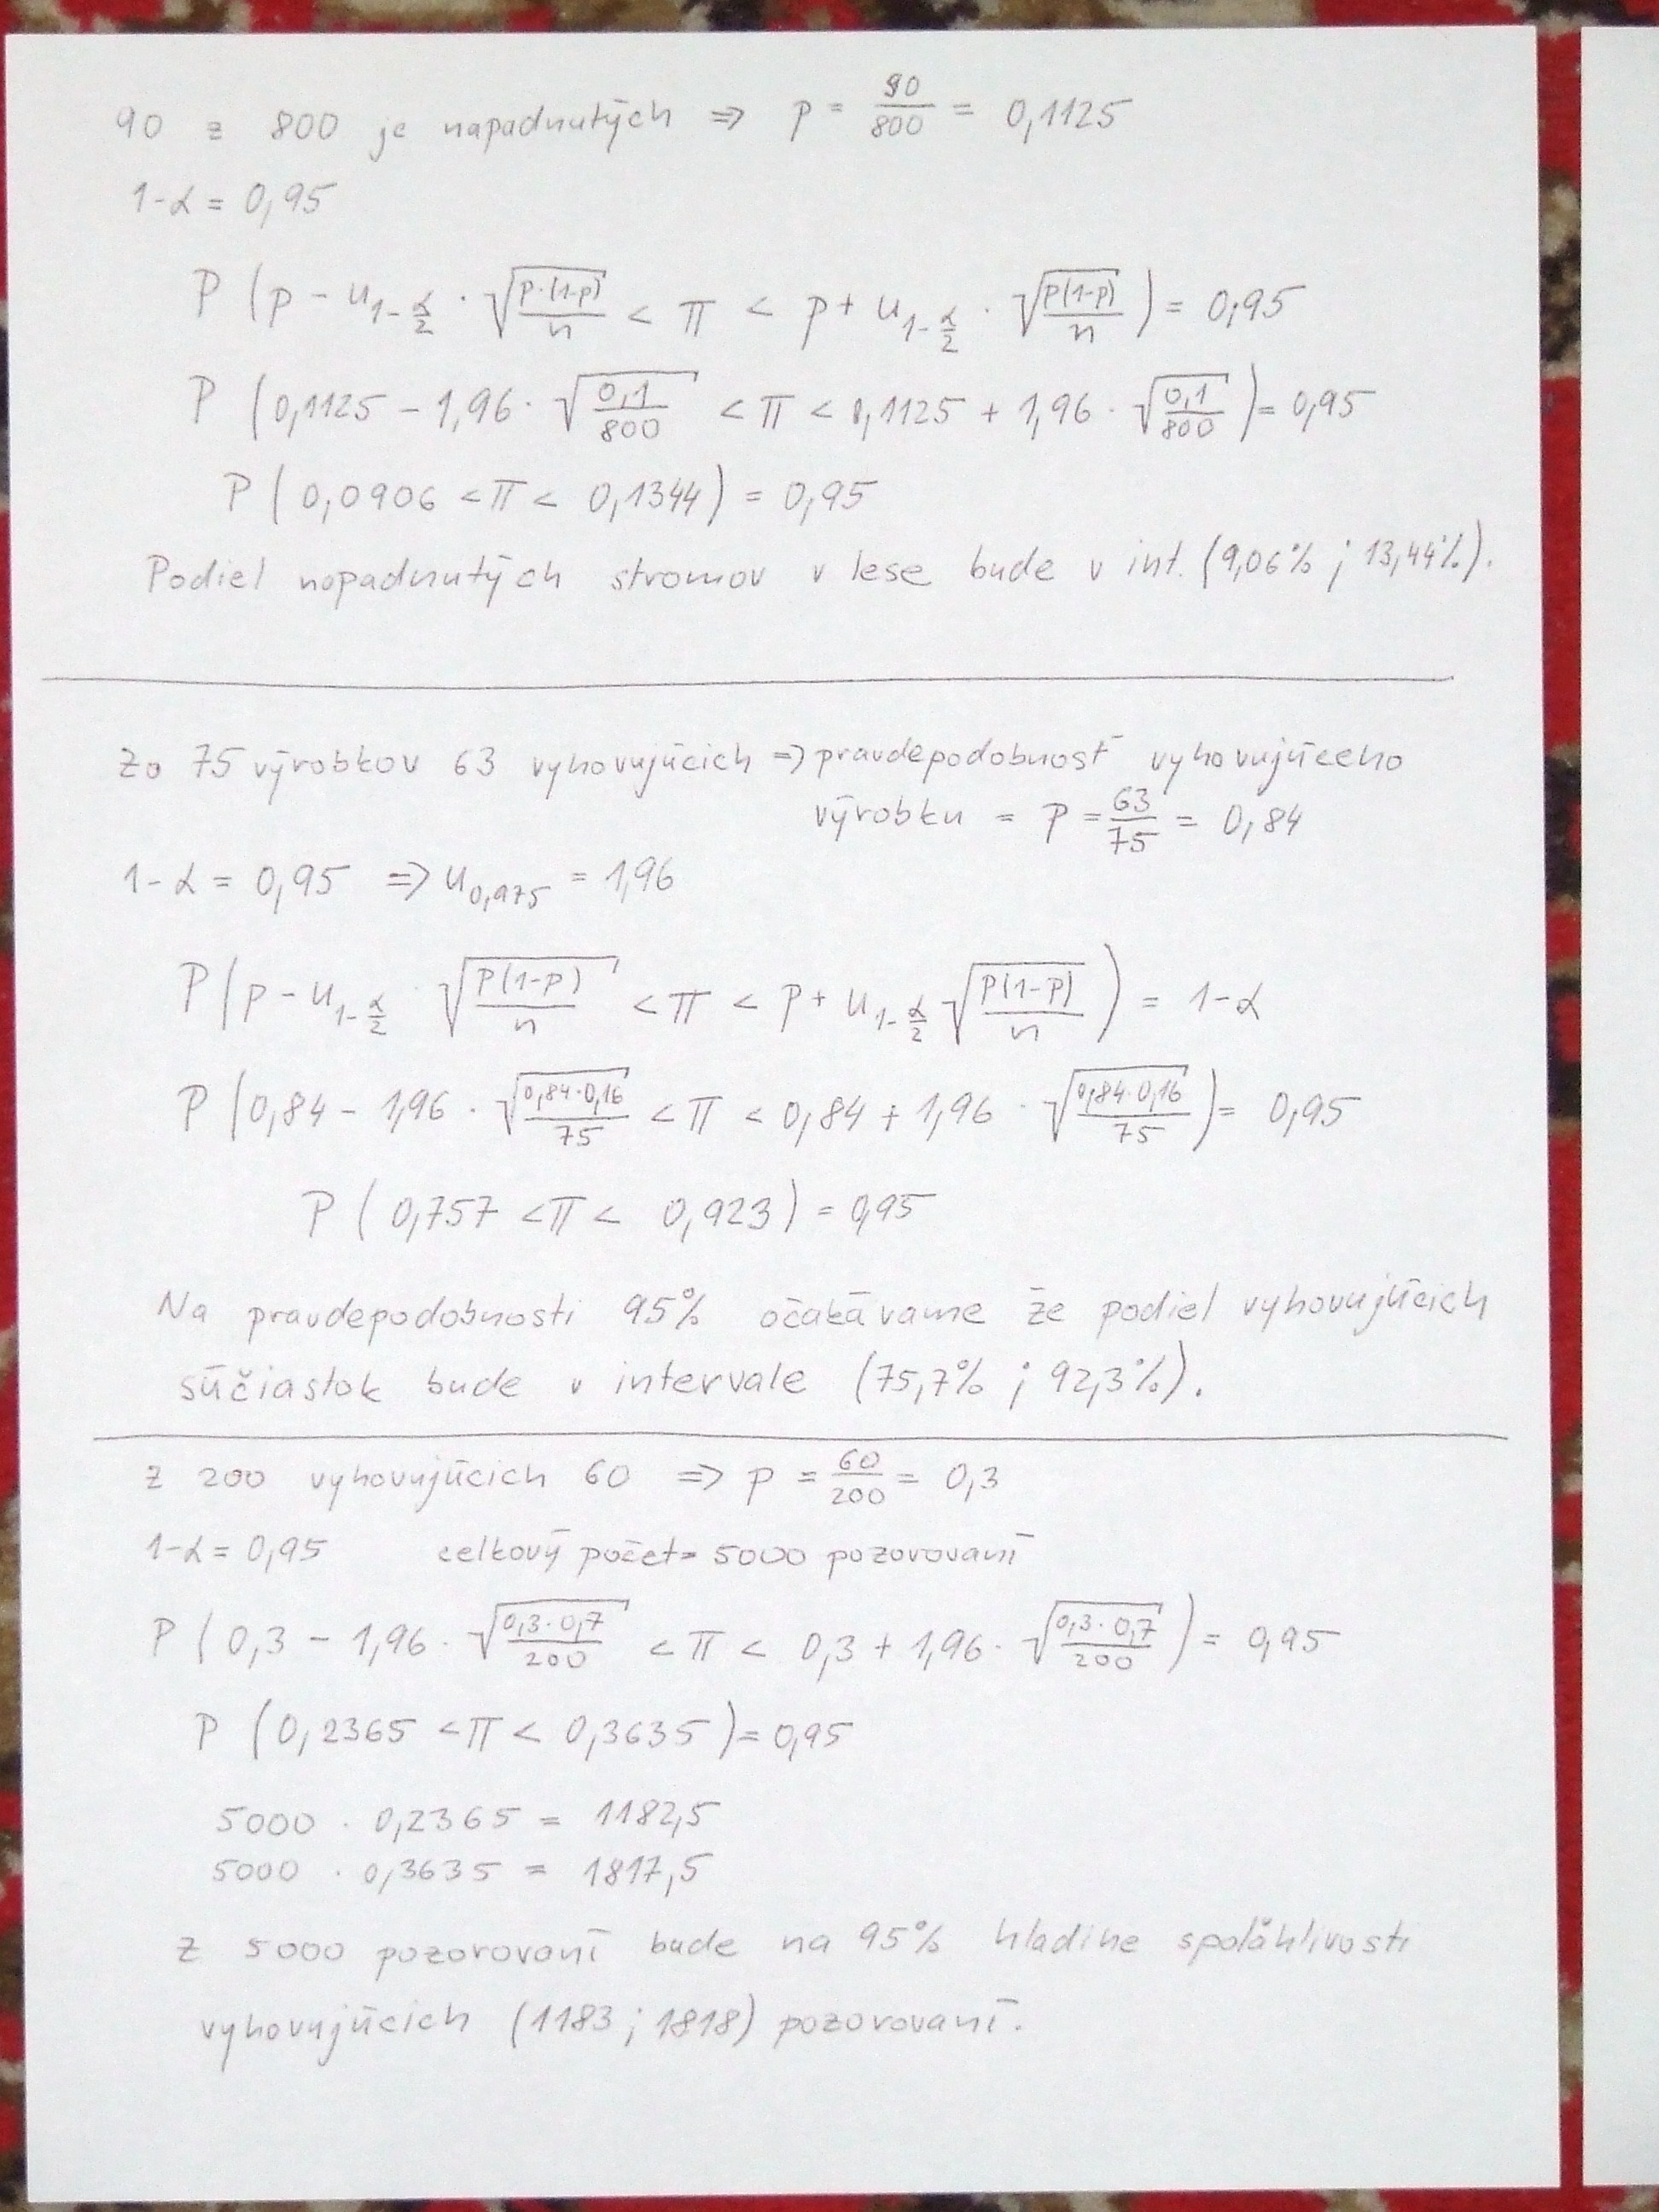 90 z 800 je napadnutých => p = 90/800 = 0,1125
1-α = 0,95
P (p - u_{1-α/2} · √(p·(1-p)/n) < π < p + u_{1-α/2} · √(p(1-p)/n)) = 0,95
P (0,1125 - 1,96 · √(0,1/800) < π < 0,1125 + 1,96 · √(0,1/800)) = 0,95
P (0,0906 < π < 0,1344) = 0,95
Podiel napadnutých stromov v lese bude v int. (9,06% ; 13,44%).
Zo 75 výrobkov 63 vyhovujúcich => pravdepodobnosť vyhovujúceho
výrobku = p = 63/75 = 0,84
1-α = 0,95 => u_{0,975} = 1,96
P (p - u_{1-α/2} · √(p(1-p)/n) < π < p + u_{1-α/2} √(p(1-p)/n)) = 1-α
P (0,84 - 1,96 · √(0,84·0,16/75) < π < 0,84 + 1,96 · √(0,84·0,16/75)) = 0,95
P (0,757 < π < 0,923) = 0,95
Na pravdepodobnosti 95% očakávame že podiel vyhovujúcich
súčiastok bude v intervale (75,7% ; 92,3%).
z 200 vyhovujúcich 60 => p = 60/200 = 0,3
1-α = 0,95 celkový počet = 5000 pozorovaní
P (0,3 - 1,96 · √(0,3·0,7/200) < π < 0,3 + 1,96 · √(0,3·0,7/200)) = 0,95
P (0,2365 < π < 0,3635) = 0,95
5000 · 0,2365 = 1182,5
5000 · 0,3635 = 1817,5
z 5000 pozorovaní bude na 95% hladine spoľahlivosti
vyhovujúcich (1183 ; 1818) pozorovaní.